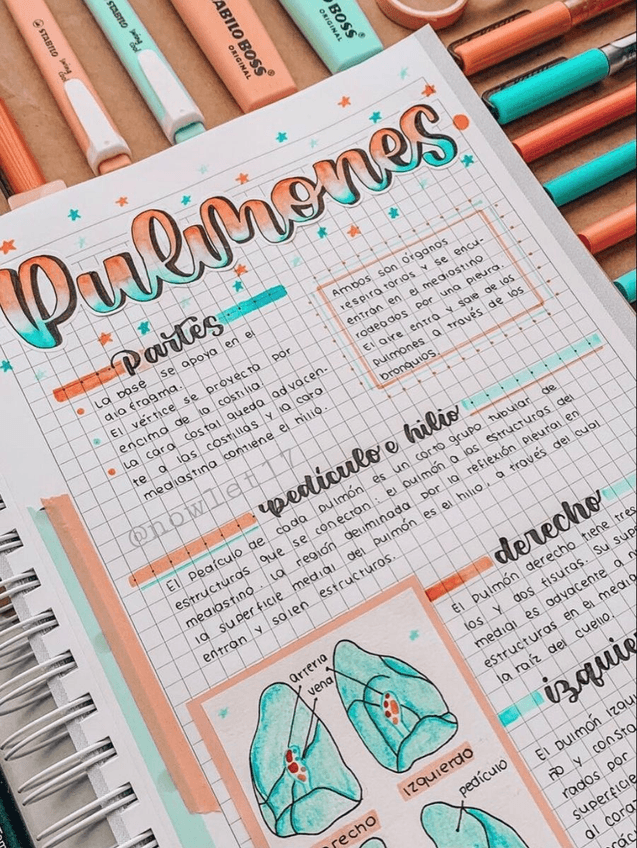 STABILO
STABILO
STABILO BOSS
ORIGINAL
BOSS
ORIGINAL
Pulmones
Ambos son órganos
respiratorios y se encu-
entran en el mediastino
rodeados por una pleura.
El aire entra y sale de los
pulmones a través de los
bronquios.
Partes
La base se apoya en el
diafragma.
El vértice se proyecta por
encima de la costilla
La cara costal queda adyacen-
te a las costillas y la cara
mediastina contiene el hilio.
@nowlet17
pedículo e hilio
El Pedículo de cada pulmón es un corto grupo tubular de
estructuras que se conectan el pulmón a las estructuras del
mediastino. La región delimitada por la reflexión pleural en
la superficie medial del pulmón es el hilio, a través del cual
entran y salen estructuras.
derecho
El pulmón derecho tiene tres
los y dos fisuras. Su
medial es adyacente a
estructuras en el
la raíz del cuello.
izquie
El pulmón
ño y
rados por
superficie
al
arteria
vena
izquierdo
recho
pedículo